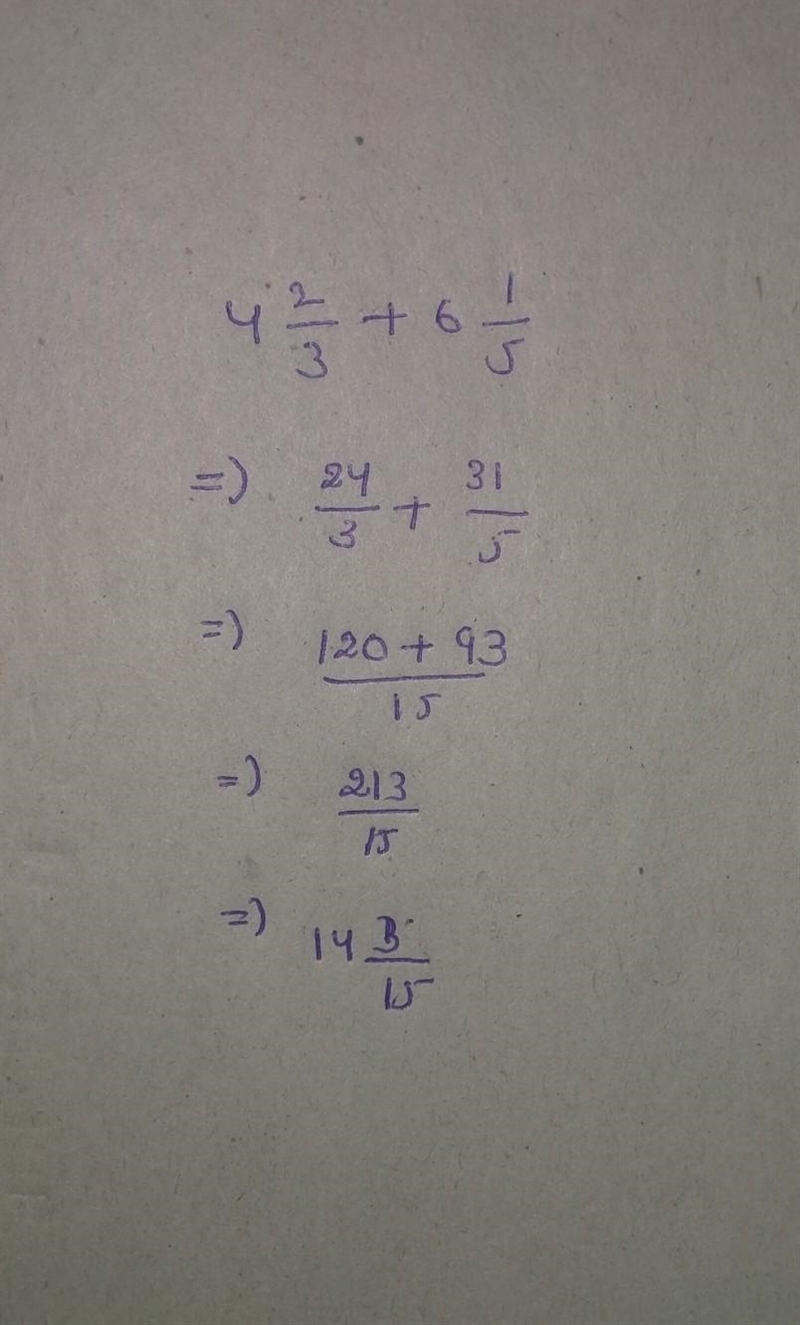 4 2/3 + 6 1/5
=) 24/3 + 31/5
=) (120 + 93)/15
=) 213/15
=) 14 3/15